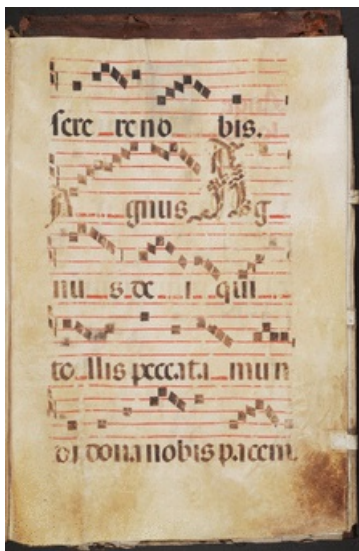 sere re no bis.
Agnus Ag
nus de i qui
to llis peccata mun
di dona nobis pacem.